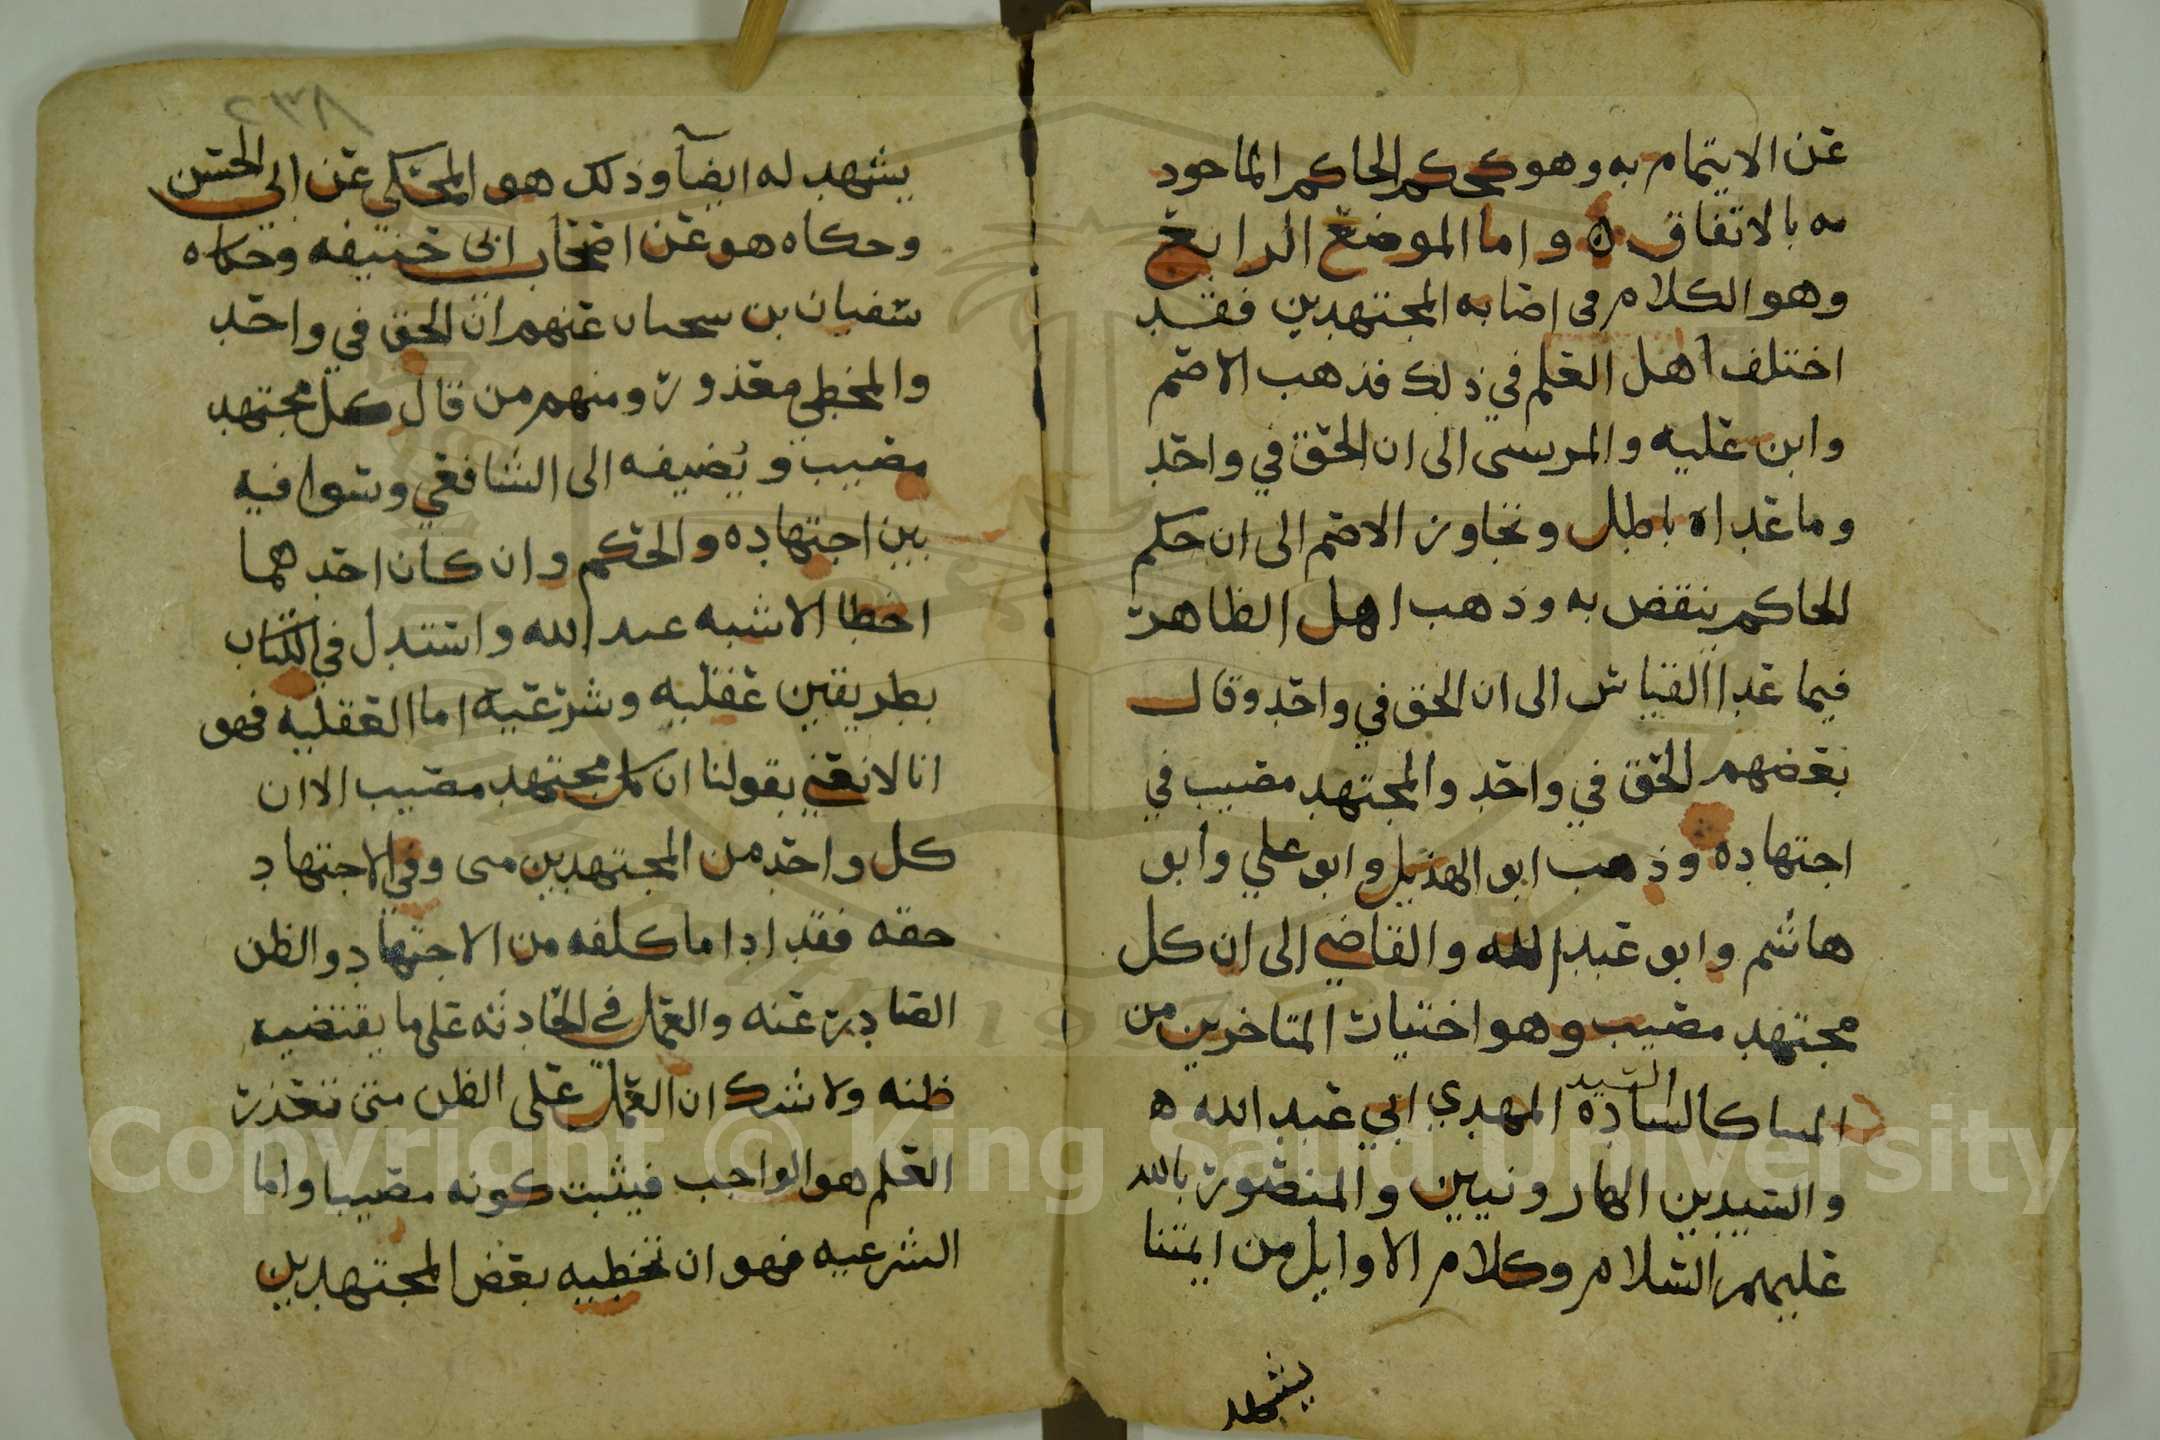 عن الايتمام به وهو كحكم الحاكم الماخود
به بالاتفاق ه واما الموضع الرابع
وهو الكلام في اصابه المجتهدين فقد
اختلف اهل العلم في ذلك فذهب الاصم
وابن عليه والمريسي الى ان الحق في واحد
وما عداه باطل وتجاوز الاصم الى ان حكم
الحاكم ينقض به وذهب اهل الظاهر
فيما عدا القياس الى ان الحق في واحد وقال
بعضهم الحق في واحد والمجتهد مصيب في
اجتهاده وذهب ابو الهذيل وابو علي وابو
هاشم وابو عبد الله والقاضي الى ان كل
مجتهد مصيب وهو اختيار المتاخرين من
السيد
كالساده المهدي ابي عبد الله ه
والسيدين الهارونيين والمنصور بالله
عليهم السلام وكلام الاوايل من ايمتنا
يشهد
٢٣٨
يشهد له ايضا وذلك هو المحكي عن ابي الحسن
وحكاه هو عن اصحاب ابي حنيفه وحكاه
سفيان بن سحبان عنهم ان الحق في واحد
والمخطي معذور ومنهم من قال كل مجتهد
مصيب ويضيفه الى الشافعي وسوا فيه
بين اجتهاده والحكم وان كان احدهما
اخطا الاشبه عند الله واستدل في الكتاب
بطريقين عقليه وشرعيه اما العقليه فهو
انا لا نعني بقولنا ان كل مجتهد مصيب الا ان
كل واحد من المجتهدين متى وفي الاجتهاد
حقه فقد ادا ما كلفه من الاجتهاد والظن
الصادر عنه والعمل في الحادثه على ما يقتضيه
ظنه ولا شك ان العمل على الظن متى تعذر
العلم هو الواجب فيثبت كونه مصيبا واما
الشرعيه فهو ان تخطيه بعض المجتهدين
Copyright © King Saud University